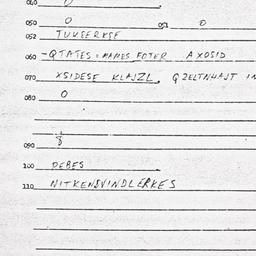 040 0
050 0 051 0
052 TUKSERKSF
060 -QTATES = MAMES FOTER AXOSID
070 XSIDESF KLAJZL, GZELTN4AJT IN
080 0
090 8
100 DEBES
110 NITKENSVINDLERKES